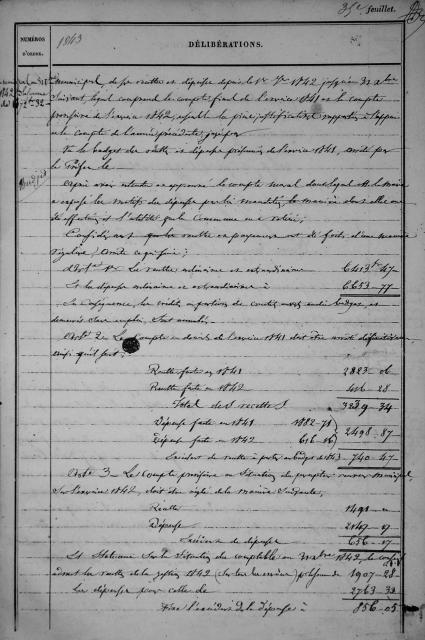 35e feuillet.
NUMÉROS
D'ORDRE.
1843
DÉLIBÉRATIONS.
municipal, des recettes et dépenses depuis le 1er 1842 jusqu'au 31 Xbre
suivant, lequel comprend le compte final de l'exercice 1841 et le compte
provisoire de l'exercice 1842, appuyé des pièces justificatives
le compte de l'année précédente
Vu le budget des recettes et dépenses présumées de l'exercice 1841, arrêté par
le Préfet le
Après avoir entendu et approuvé le compte moral dans lequel M. le Maire
a exposé les motifs des dépenses par lui mandatées, la manière dont elles ont
été effectuées et l'utilité que la commune en a retiré;
Considérant que les recettes et payements ont été faits d'une manière
régulière; arrête ce qui suit;
Art. 1er Les recettes ordinaires et extraordinaires 6413 47
Et les dépenses ordinaires et extraordinaires à 6653 77
En conséquence, les crédits ou portions de crédits au budget, et
demeurés sans emploi, sont annulés.
Art. 2. Le compte en deniers de l'exercice 1841 doit être arrêté définitivement
ainsi qu'il suit:
Recettes faites en 1841 2823 06
Recettes faites en 1842 416 28
Total des recettes 3239 34
Dépenses faites en 1841 1882 71
Dépenses faites en 1842 616 16
2498 87
Excédent de recettes à porter au budget de 1843 740 47
Article 3. Le compte provisoire municipal,
sur l'exercice 1842, doit être réglé de la manière suivante;
Recettes 1491
Dépenses 2147 17
Excédent de dépenses 656 17
Et statuant sur la situation du comptable au 31 Xbre 1842, le conseil
admet les recettes de la gestion 1842 pour la somme de 1907 28
Les dépenses pour celle de 2763 33
dépenses à 856 05